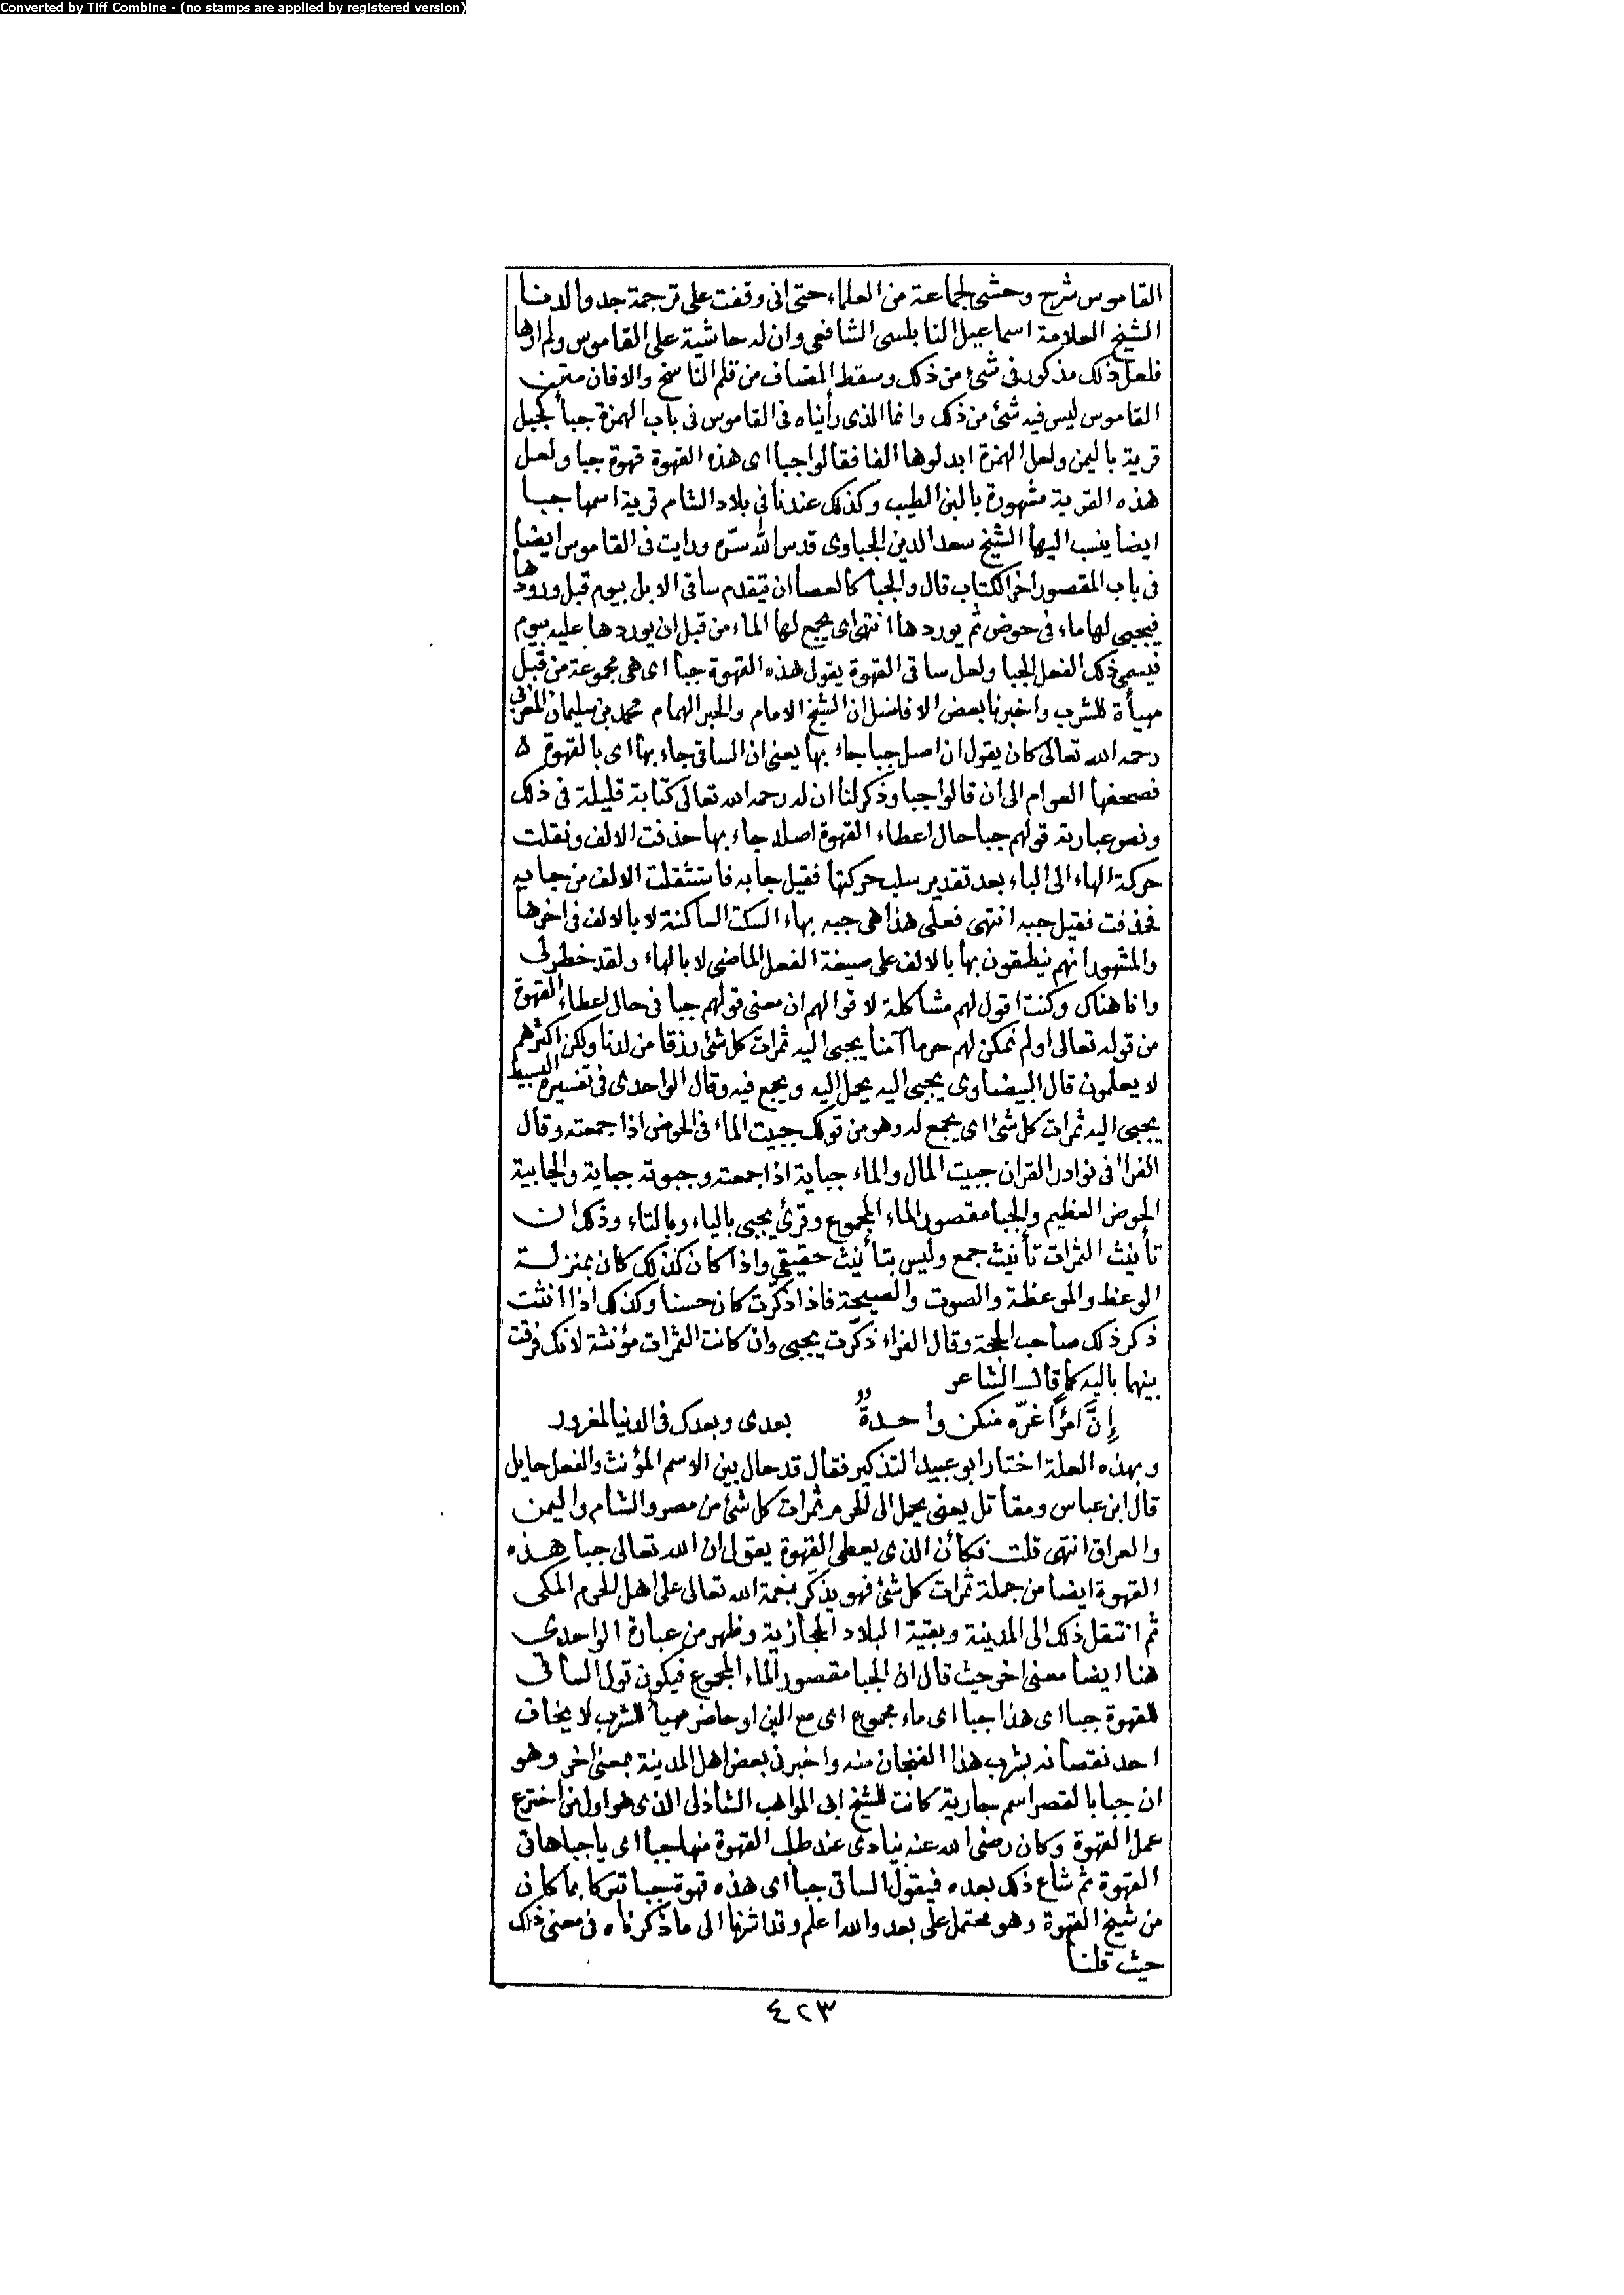 Converted by Tiff Combine - (no stamps are applied by registered version)
القاموس شرح وحشى لجماعة من العلماء حتى انى وقفت على ترجمة جد والدنا
الشيخ العلامة اسماعيل النابلسى الشافعى وان له حاشية على القاموس ولم ارها
فلعل ذلك مذكور فى شئ من ذلك وسقط المضاف من قلم الناسخ والا فان متن
القاموس ليس فيه شئ من ذلك وانما الذى رأيناه فى القاموس فى باب الهمزة جبأ كجبل
قرية باليمن ولعل الهمزة ابدلوها الفا فقالوا جبا اى هذه القهوة قهوة جبا ولعل
هذه القرية مشهورة بالبن الطيب وكذلك عندنا فى بلاد الشام قرية اسمها جبا
ايضا ينسب اليها الشيخ سعد الدين الجباوى قدس الله سرّه ورايت فى القاموس ايضا
فى باب المقصور اخر الكتاب قال والجبا كالعصا ان يتقدم ساقى الابل بيوم قبل ورودها
فيجبى لها ماء فى حوض ثم يوردها انتهى اى يجمع لها الماء من قبل ان يوردها عليه بيوم
فيسمى ذلك الفعل الجبا ولعل ساقى القهوة يقول هذه القهوة جبا اى هى مجموعة من قبل
مهيأة للشرب واخبرنا بعض الافاضل ان الشيخ الامام والحبر الهمام محمد بن سليمان المغربى
رحمه الله تعالى كان يقول ان اصل جبا جاء بها يعنى ان الساقى جاء بها اى بالقهوة ه
فصحفها العوام الى ان قالوا جبا وذكر لنا ان له رحمه الله تعالى كتابة قليلة فى ذلك
ونص عبارته قولهم جبا حال اعطاء القهوة اصله جاء بها حذفت الالف ونقلت
حركة الهاء الى الباء بعد تقدير سلب حركتها فقيل جابه فاستثقلت الالف من جابه
فحذفت فقيل جبه انتهى فعلى هذا هى جبه بهاء السكت الساكنة لا بالالف فى اخرها
والمشهور انهم ينطقون بها بالالف على صيغة الفعل الماضى لا بالهاء ولقد خطر لى
وانا هناك وكنت اقول لهم مشاكلة لاقوالهم ان معنى قولهم جبا فى حال اعطاء القهوة
من قوله تعالى اولم نمكن لهم حرما آمنا يجبى اليه ثمرات كل شئ رزقا من لدنا ولكن اكثرهم
لا يعلمون قال البيضاوى يجبى اليه يحمل اليه ويجمع فيه وقال الواحدى فى تفسيره البسيط
يجبى اليه ثمرات كل شئ اى يجمع له وهو من قولك جبيت الماء فى الحوض اذا جمعته وقال
الفراء فى نوادر القران جبيت المال والماء جباية اذا جمعته وجبوته جباية والجابية
الحوض العظيم والجبا مقصور الماء المجموع وقرئ يجبى بالياء وبالتاء وذلك ان
تأنيث الثمرات تأنيث جمع وليس بتأنيث حقيقى واذا كان كذلك كان بمنزلة
الوعظ والموعظة والصوت والصيحة فاذا ذكّرت كان حسنا وكذلك اذا انثت
ذكر ذلك صاحب الحجة وقال الفراء ذكّرت يجبى وان كانت الثمرات مؤنثة لانك فرقت
بينهما باليه كما قال الشاعر
إِنَّ امرًأ غرّه منكن واحدةٌ بعدى وبعدك فى الدنيا لمغرور
وبهذه العلة اختار ابو عبيد التذكير فقال قد حال بين الاسم المؤنث والفعل حايل
قال ابن عباس ومقاتل يعنى يحمل الى الحرم ثمرات كل شئ من مصر والشام واليمن
والعراق انتهى قلت فكأن الذى يعطى القهوة يقول ان الله تعالى جبا هذه
القهوة ايضا من جملة ثمرات كل شئ فهو يذكّر بنعمة الله تعالى على اهل الحرم المكى
ثم انتقل ذلك الى المدينة وبقية البلاد الحجازية وظهر من عبارة الواحدى
هنا ايضا معنى اخر حيث قال ان الجبا مقصور الماء المجموع فيكون قول الساقى
للقهوة جبا اى هذا جبا اى ماء مجموع اى مع البن او حاضر مهيأ للشرب لا يخاف
احد نقصانه بشرب هذا الفنجان منه واخبرنى بعض اهل المدينة بمعنى اخر وهو
ان جبا بالقصر اسم جارية كانت للشيخ ابى المواهب الشاذلى الذى هو اول من اخترع
عمل القهوة وكان رضى الله عنه ينادى عند طلب القهوة منها جبا اى يا جبا هاتى
القهوة ثم شاع ذلك بعده فيقول الساقى جبا اى هذه قهوة جبا تبركا بما كان
من شيخ القهوة وهو محتمل على بعد والله اعلم وقد اشرنا الى ما ذكرناه فى معنى ذلك
حيث قلنا
٤٢٣